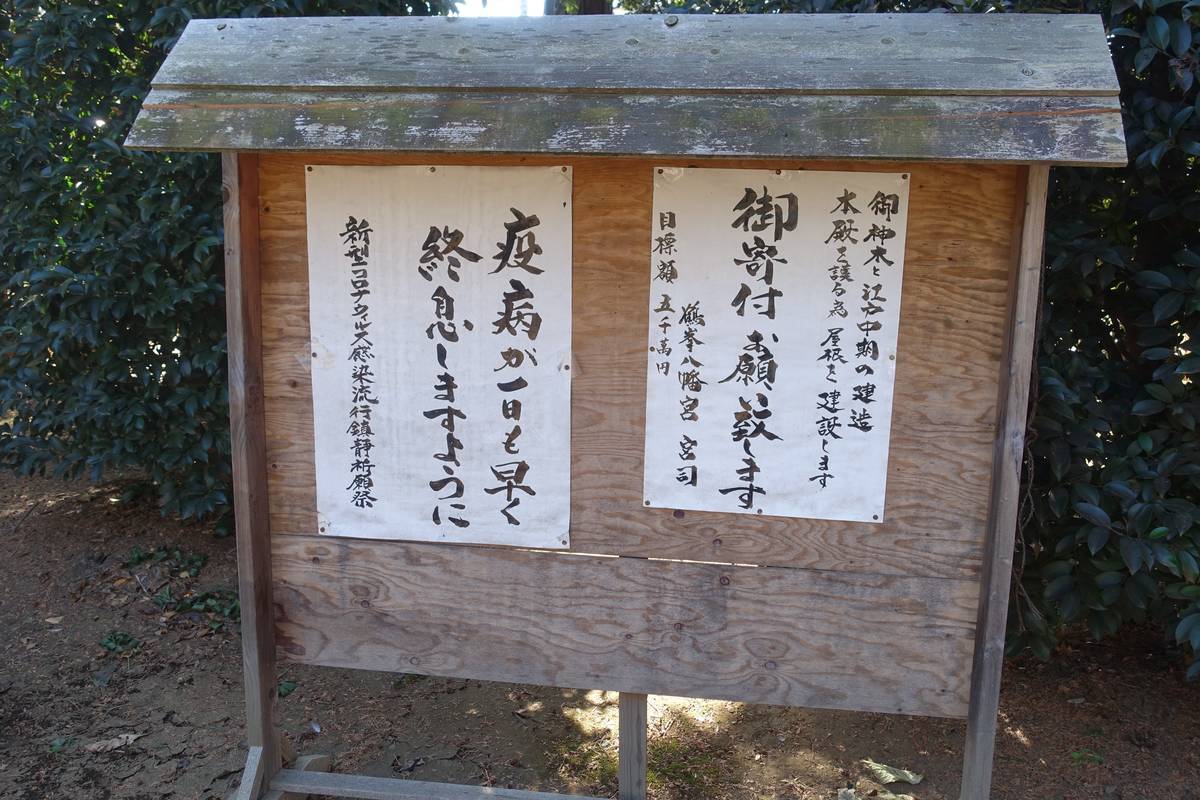 御神木と江戸中期の建造
本殿を護る為 屋根を建設します
御寄付お願い致します
鶴峯八幡宮 宮司
目標額 五千萬円
疫病が一日も早く
終息しますように
新型コロナウィルス感染流行鎮静祈願祭